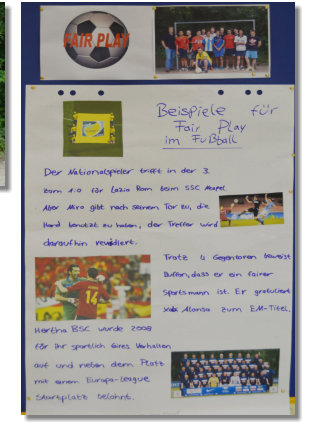 FAIR PLAY
Beispiele für
Fair Play
im Fußball
Der Nationalspieler trifft in der 3.
zum 1:0 für Lazio Rom beim SSC Neapel.
Aber Miro gibt nach seinem Tor zu, die
Hand benutzt zu haben, der Treffer wird
daraufhin revidiert.
Trotz 4 Gegentoren beweist
Buffon, dass er ein fairer
Sportsmann ist. Er gratuliert
Xabi Alonso zum EM-Titel.
14
Hertha BSC wurde 2008
für ihr sportlich faires Verhalten
auf und neben dem Platz
mit einem Europa-League
Startplatz belohnt.